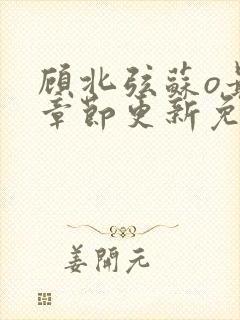 顾北弦蘇o
章節更新免
姜開元